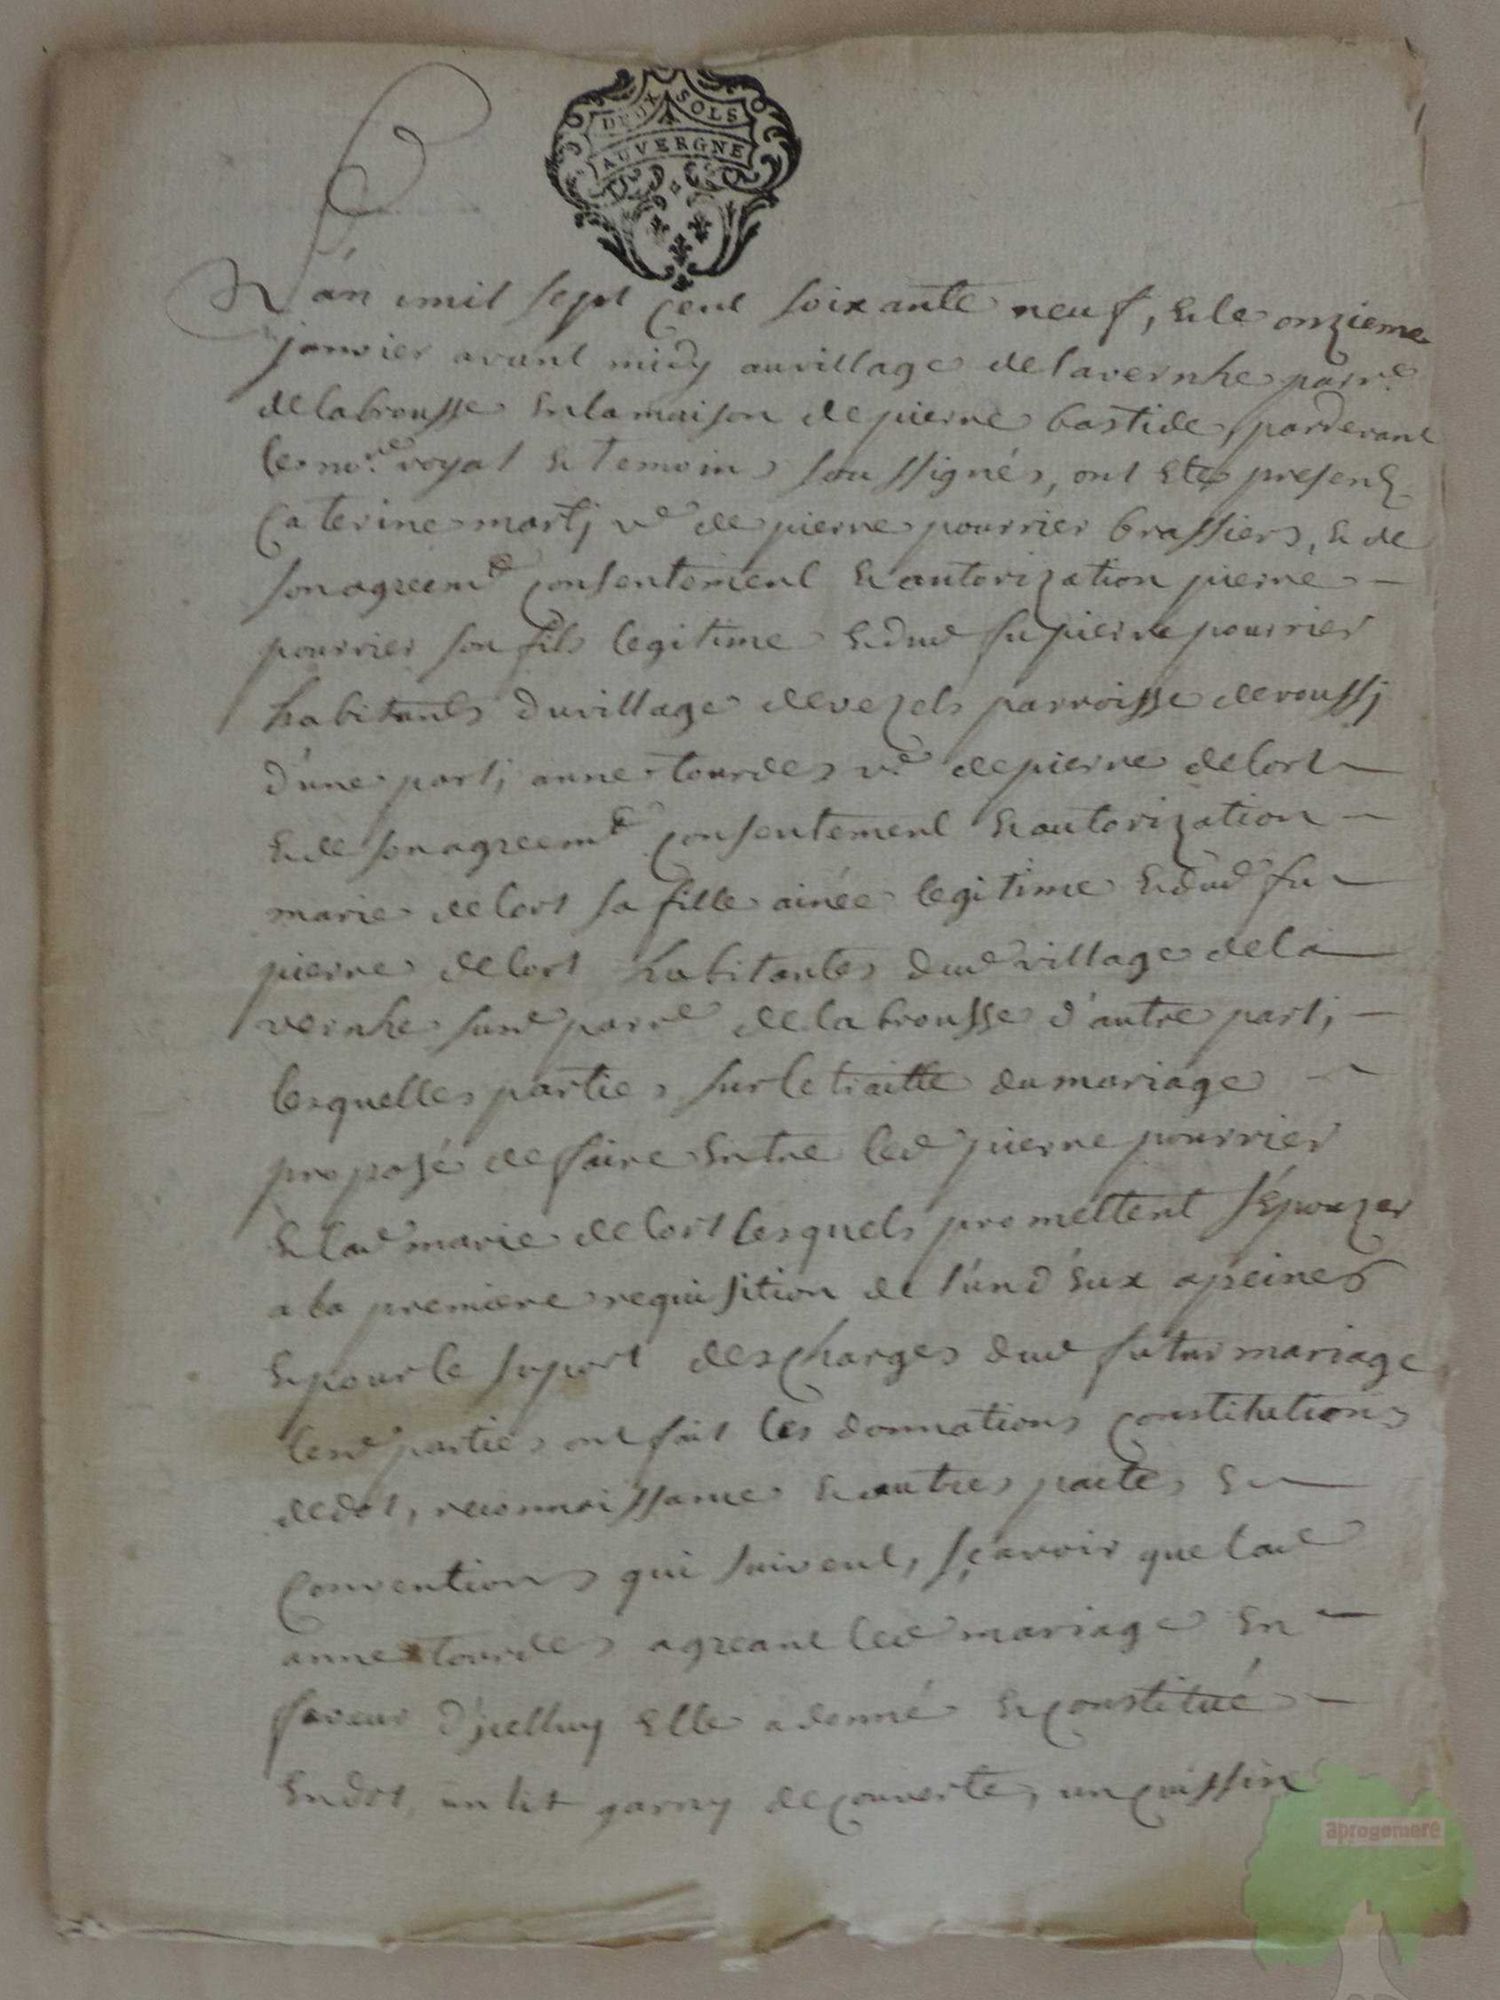 DEUX SOLS
AUVERGNE
L'an mil sept cent soixante neuf, & le onzieme
janvier avant midy au village de lavernhe parr.e
de labrousse en la maison de pierre bastide, pardevant
les no.re royal & temoins soussignés, ont eté presens
Caterine marti v.e de pierre pourrier brassiers, & de
son agreem.t consentement & autorization pierre
pourrier son fils legitime & dud fu pierre pourrier
habitants du village de vezels parroisse de roussi
d'une part; anne tourdes v.e de pierre delort
& de son agreem.t consentement & autorization
marie delort sa fille ainée legitime & dud fu
pierre delort habitantes dud village de la
vernhe susd parr.e de labrousse d'autre part;
lesquelles parties sur le traitte du mariage
proposé de faire entre led pierre pourrier
& lad marie delort lesquels promettent s'épouzer
a la premiere requisition de l'un d'eux a peines
& pour le suport des charges dud futur mariage
lesd parties ont fait les donnations constitutions
de dot, reconnaissance & autres pactes &
conventions qui suivent, sçavoir que lad
anne tourdes agreant led mariage en
faveur d'icelluy elle a donné & constitué
en dot, un lit garny de couverte, un cuissin
aprogemere